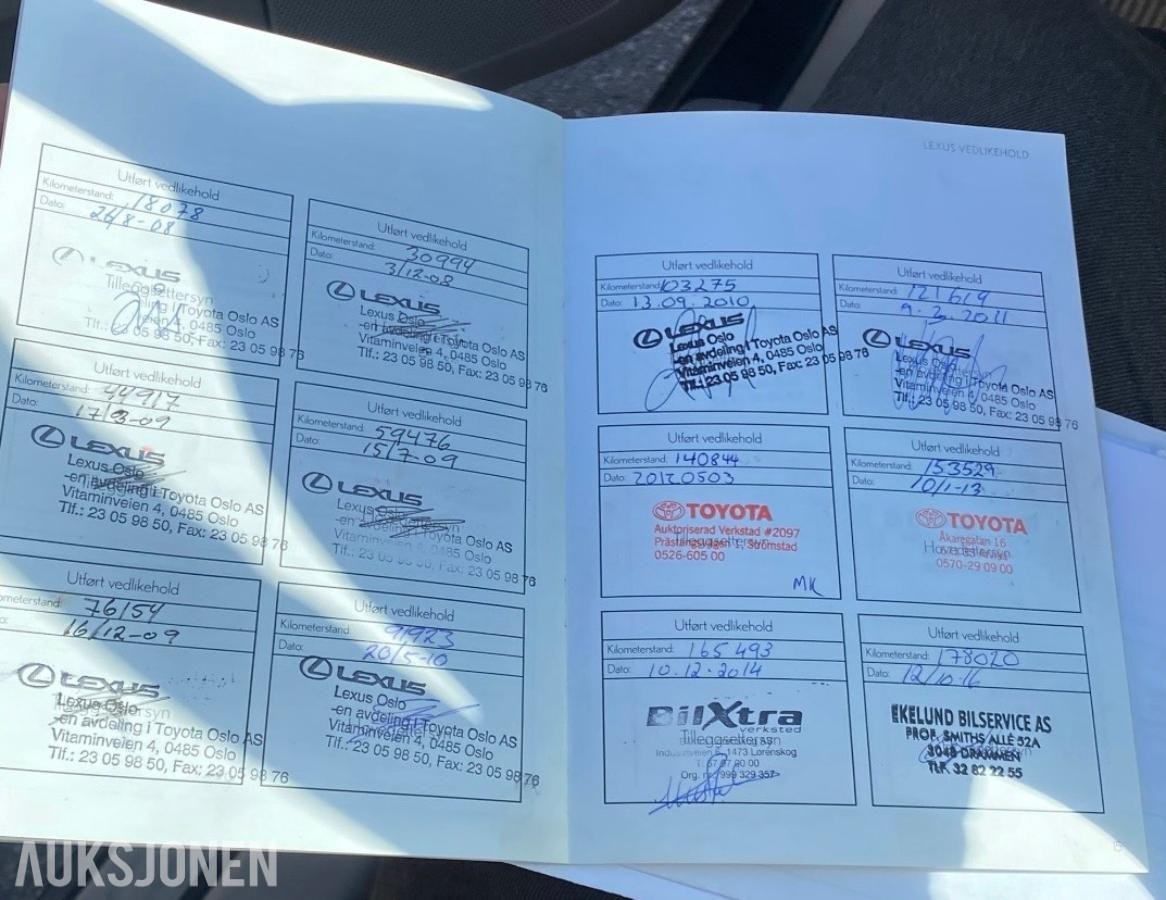 LEXUS VEDLIKEHOLD
Utført vedlikehold
Kilometerstand: 18078
Dato: 26/8-08
LEXUS
Tilleggsettersyn
Toyota Oslo AS
0485 Oslo
Tlf.: 23 05 98 50, Fax: 23 05 98 76
Utført vedlikehold
Kilometerstand: 30994
Dato: 3/12-08
LEXUS
Lexus Oslo
-en avdeling i Toyota Oslo AS
Vitaminveien 4, 0485 Oslo
Tlf.: 23 05 98 50, Fax: 23 05 98 76
Utført vedlikehold
Kilometerstand: 44917
Dato: 17/3-09
LEXUS
Lexus Oslo
-en avdeling i Toyota Oslo AS
Vitaminveien 4, 0485 Oslo
Tlf.: 23 05 98 50, Fax: 23 05 98 76
Utført vedlikehold
Kilometerstand: 59476
Dato: 15/7-09
LEXUS
Lexus Oslo
-en avdeling i Toyota Oslo AS
Vitaminveien 4, 0485 Oslo
Tlf.: 23 05 98 50, Fax: 23 05 98 76
Utført vedlikehold
ometerstand: 76154
16/12-09
LEXUS
Lexus Oslo
-en avdeling i Toyota Oslo AS
Vitaminveien 4, 0485 Oslo
Tlf.: 23 05 98 50, Fax: 23 05 98 76
Utført vedlikehold
Kilometerstand: 91923
Dato: 20/5-10
LEXUS
Lexus Oslo
-en avdeling i Toyota Oslo AS
Vitaminveien 4, 0485 Oslo
Tlf.: 23 05 98 50, Fax: 23 05 98 76
Utført vedlikehold
Kilometerstand: 103275
Dato: 13.09.2010
LEXUS
Lexus Oslo
-en avdeling i Toyota Oslo AS
Vitaminveien 4, 0485 Oslo
Tlf.: 23 05 98 50, Fax: 23 05 98 76
Utført vedlikehold
Kilometerstand: 121619
Dato: 9.3.2011
LEXUS
Lexus Oslo
-en avdeling i Toyota Oslo AS
Vitaminveien 4, 0485 Oslo
Tlf.: 23 05 98 50, Fax: 23 05 98 76
Utført vedlikehold
Kilometerstand: 140844
Dato: 20120503
TOYOTA
Auktoriserad Verkstad #2097
Tilleggsettersyn
Prästängsvägen 1, Strömstad
0526-605 00
MK
Utført vedlikehold
Kilometerstand: 153529
Dato: 10/1-13
TOYOTA
Åkaregatan 16
Hovedettersyn
0570-29 09 00
Utført vedlikehold
Kilometerstand: 165 493
Dato: 10.12.2014
BilXtra
verksted
Tilleggsettersyn
1473 Lørenskog
Org. nr. 999 329 357
Utført vedlikehold
Kilometerstand: 178020
Dato: 12/10-16
EKELUND BILSERVICE AS
PROF. SMITHS ALLÉ 52A
3048 DRAMMEN
TLF. 32 82 22 55
AUKSJONEN